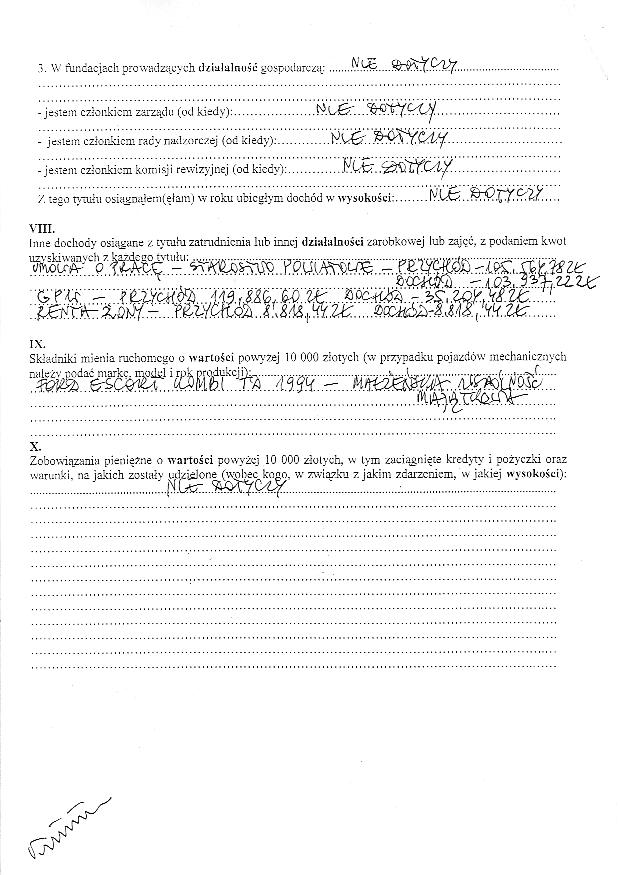 3. W fundacjach prowadzących działalność gospodarczą: NIE DOTYCZY
- jestem członkiem zarządu (od kiedy): NIE DOTYCZY
- jestem członkiem rady nadzorczej (od kiedy): NIE DOTYCZY
- jestem członkiem komisji rewizyjnej (od kiedy): NIE DOTYCZY
Z tego tytułu osiągnąłem(ęłam) w roku ubiegłym dochód w wysokości: NIE DOTYCZY
VIII.
Inne dochody osiągane z tytułu zatrudnienia lub innej działalności zarobkowej lub zajęć, z podaniem kwot
uzyskiwanych z każdego tytułu:
UMOWA O PRACĘ – STAROSTWO POWIATOWE – PRZYCHÓD – 105.564,78 ZŁ
DOCHÓD – 103.937,22 ZŁ
– PRZYCHÓD 119.886,60 ZŁ DOCHÓD – 35.204,48 ZŁ
RENTA ŻONY – PRZYCHÓD 8.818,44 ZŁ DOCHÓD – 8.818,44 ZŁ
IX.
Składniki mienia ruchomego o wartości powyżej 10 000 złotych (w przypadku pojazdów mechanicznych
należy podać markę, model i rok produkcji):
FORD ESCORT KOMBI 1994 – MAŁŻEŃSKA WSPÓLNOŚĆ
MAJĄTKOWA
X.
Zobowiązania pieniężne o wartości powyżej 10 000 złotych, w tym zaciągnięte kredyty i pożyczki oraz
warunki, na jakich zostały udzielone (wobec kogo, w związku z jakim zdarzeniem, w jakiej wysokości):
NIE DOTYCZY